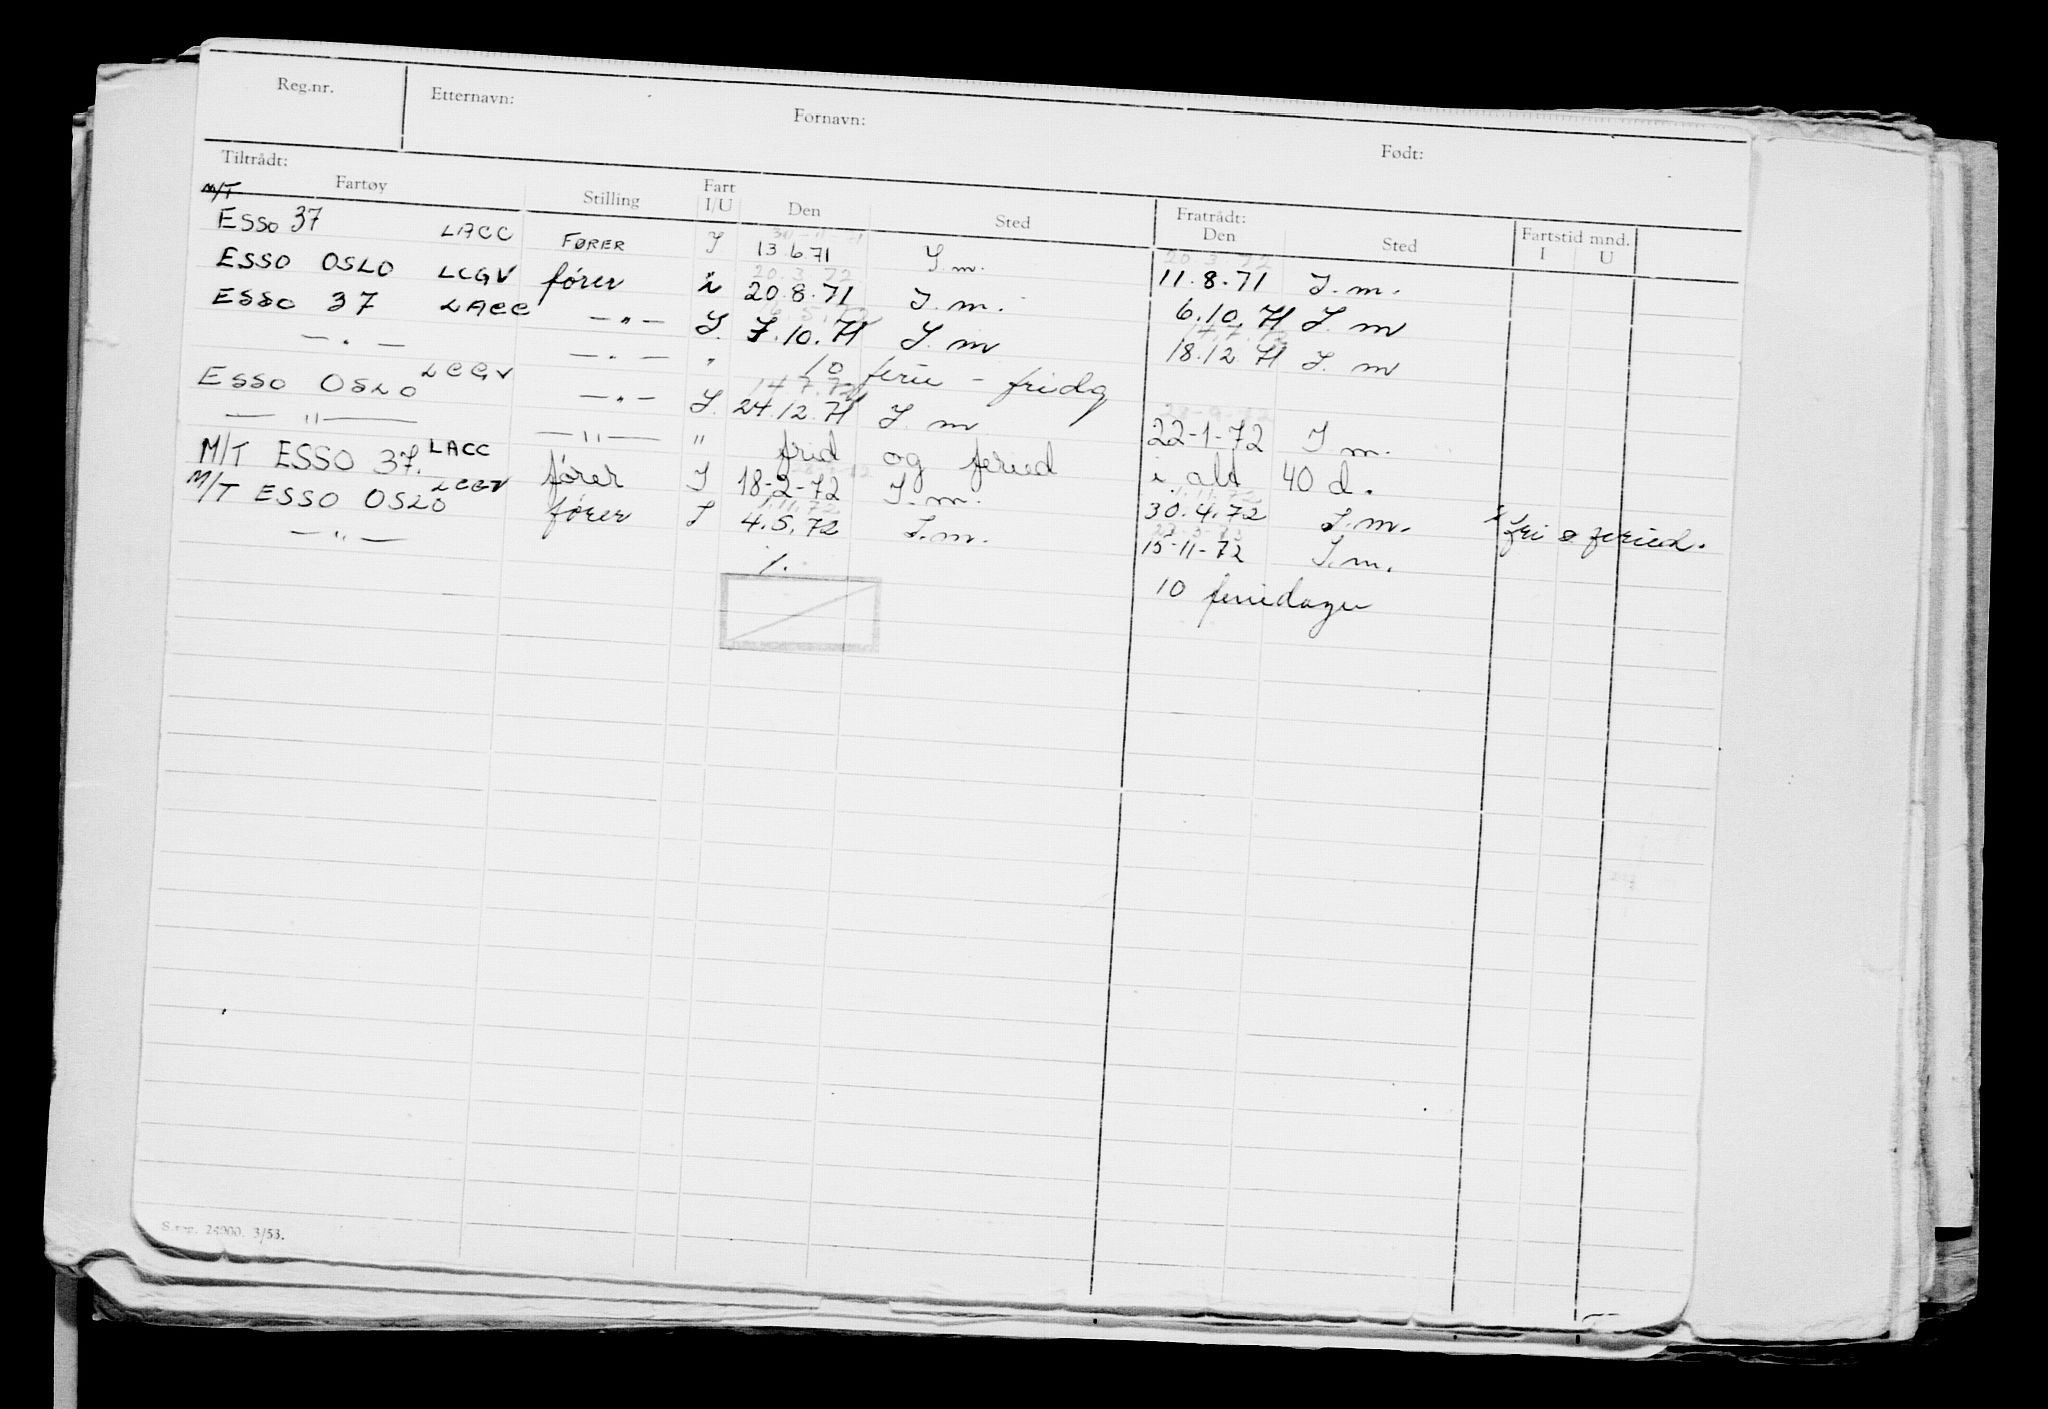 Reg.nr. Etternavn: Fornavn: Født:
Tiltrådt: Fratrådt:
Fartøy Stilling Fart I/U Den Sted Den Sted Fartstid mnd. I U
M/T
ESSO 37 LACC FØRER I 13 6 71 I.m. 11.8.71 I.m.
ESSO OSLO LCGV fører i 20.8.71 I.m. 6.10.71 I.m
ESSO 37 LACC —"— I. 7.10.71 I.m 18.12.71 I.m
—"— —"— " 10 ferie - fridg
ESSO OSLO LCGV —"— I. 24.12.71 I.m 22-1-72 I.m.
—"— —"— " frid og feried i alt 40 d.
M/T ESSO 37. LACC fører I 18-2-72 I.m. 30.4.72 I.m. fri & feried.
M/T ESSO OSLO LCGV fører I 4.5.72 I.m. 15-11-72 I.m.
—"— 10 feriedager
24000. 3/53.